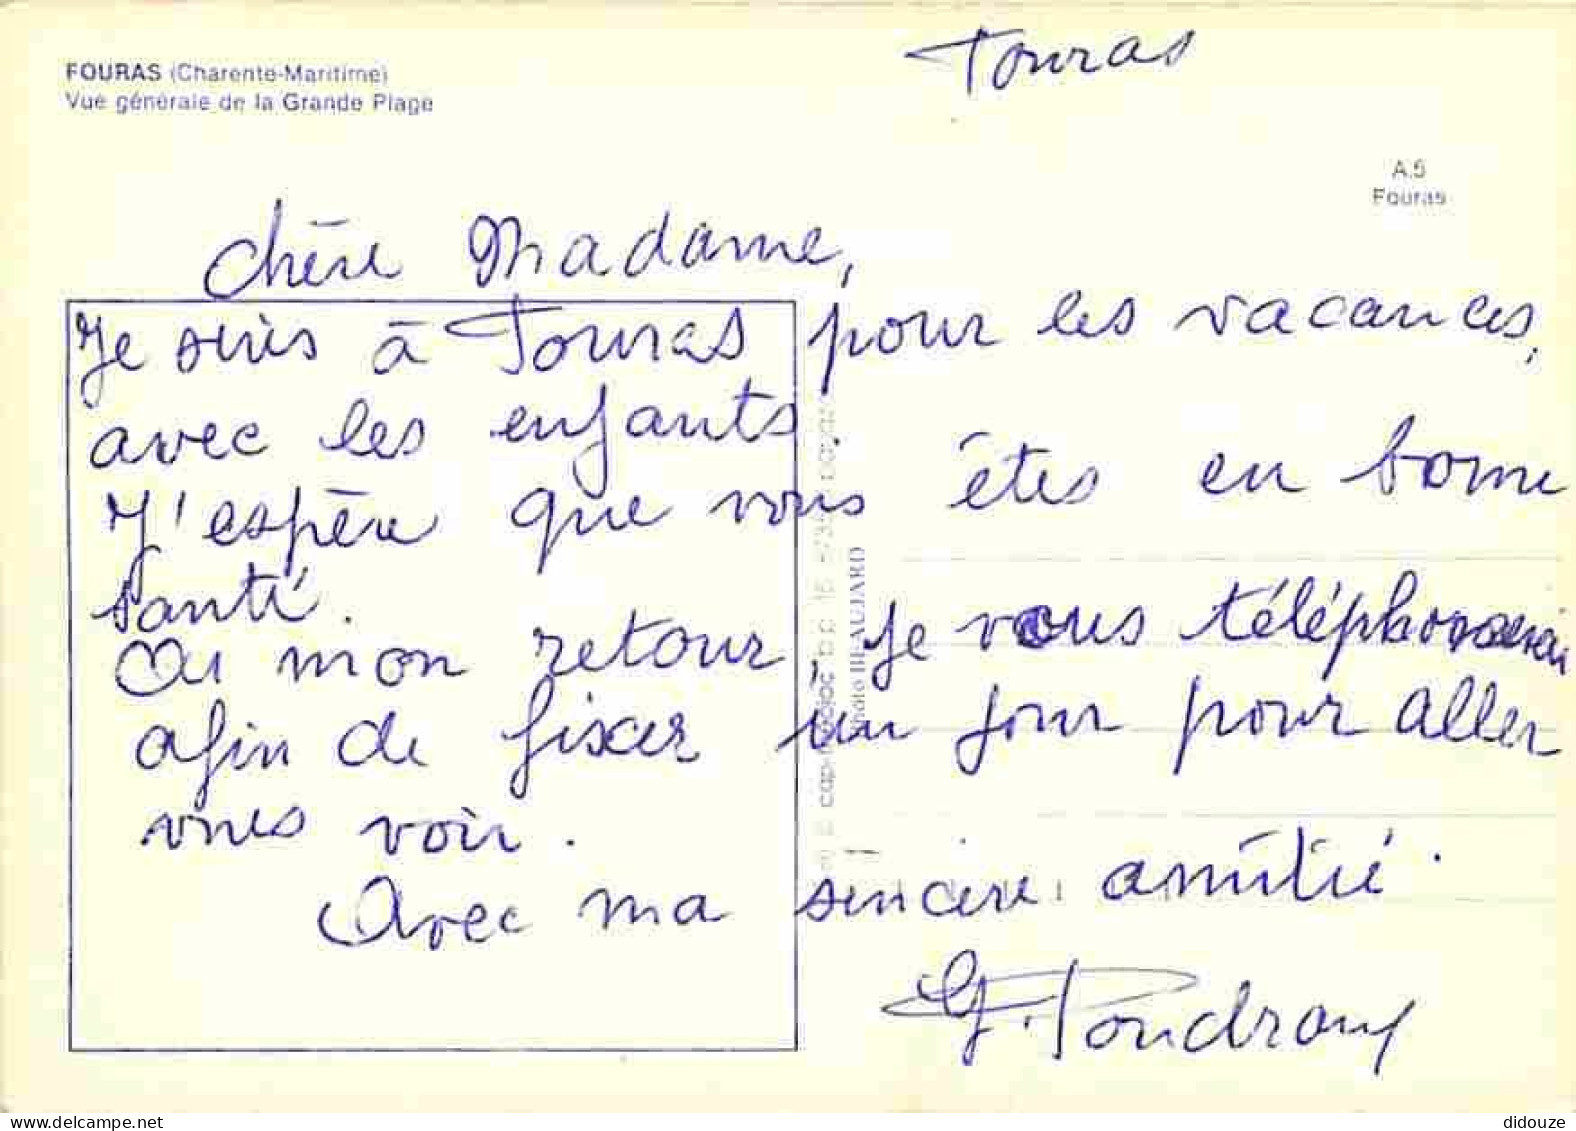 Fouras
FOURAS (Charente-Maritime)
Vue générale de la Grande Plage
A.5
Fouras
Chère Madame,
Je suis à Fouras pour les vacances,
avec les enfants.
J'espère que vous êtes en bonne
santé.
A mon retour je vous téléphonerai
afin de fixer un jour pour aller
vous voir.
Avec ma sincère amitié.
G.
photo BEAUJARD
delcampe.net
didouze